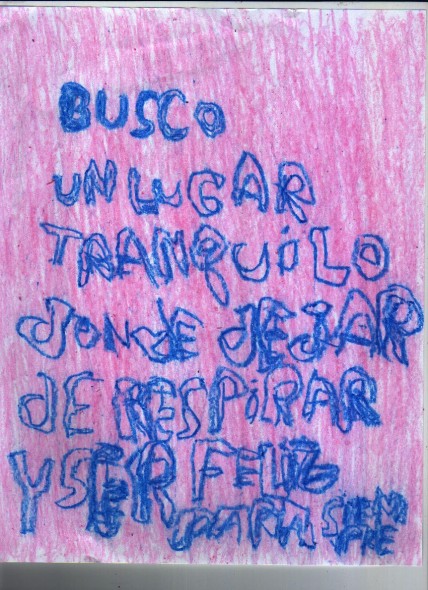 BUSCO
UN LUGAR
TRANQUILO
DONDE DEJAR
DE RESPIRAR
Y SER FELIZ
PARA SIEM
PRE